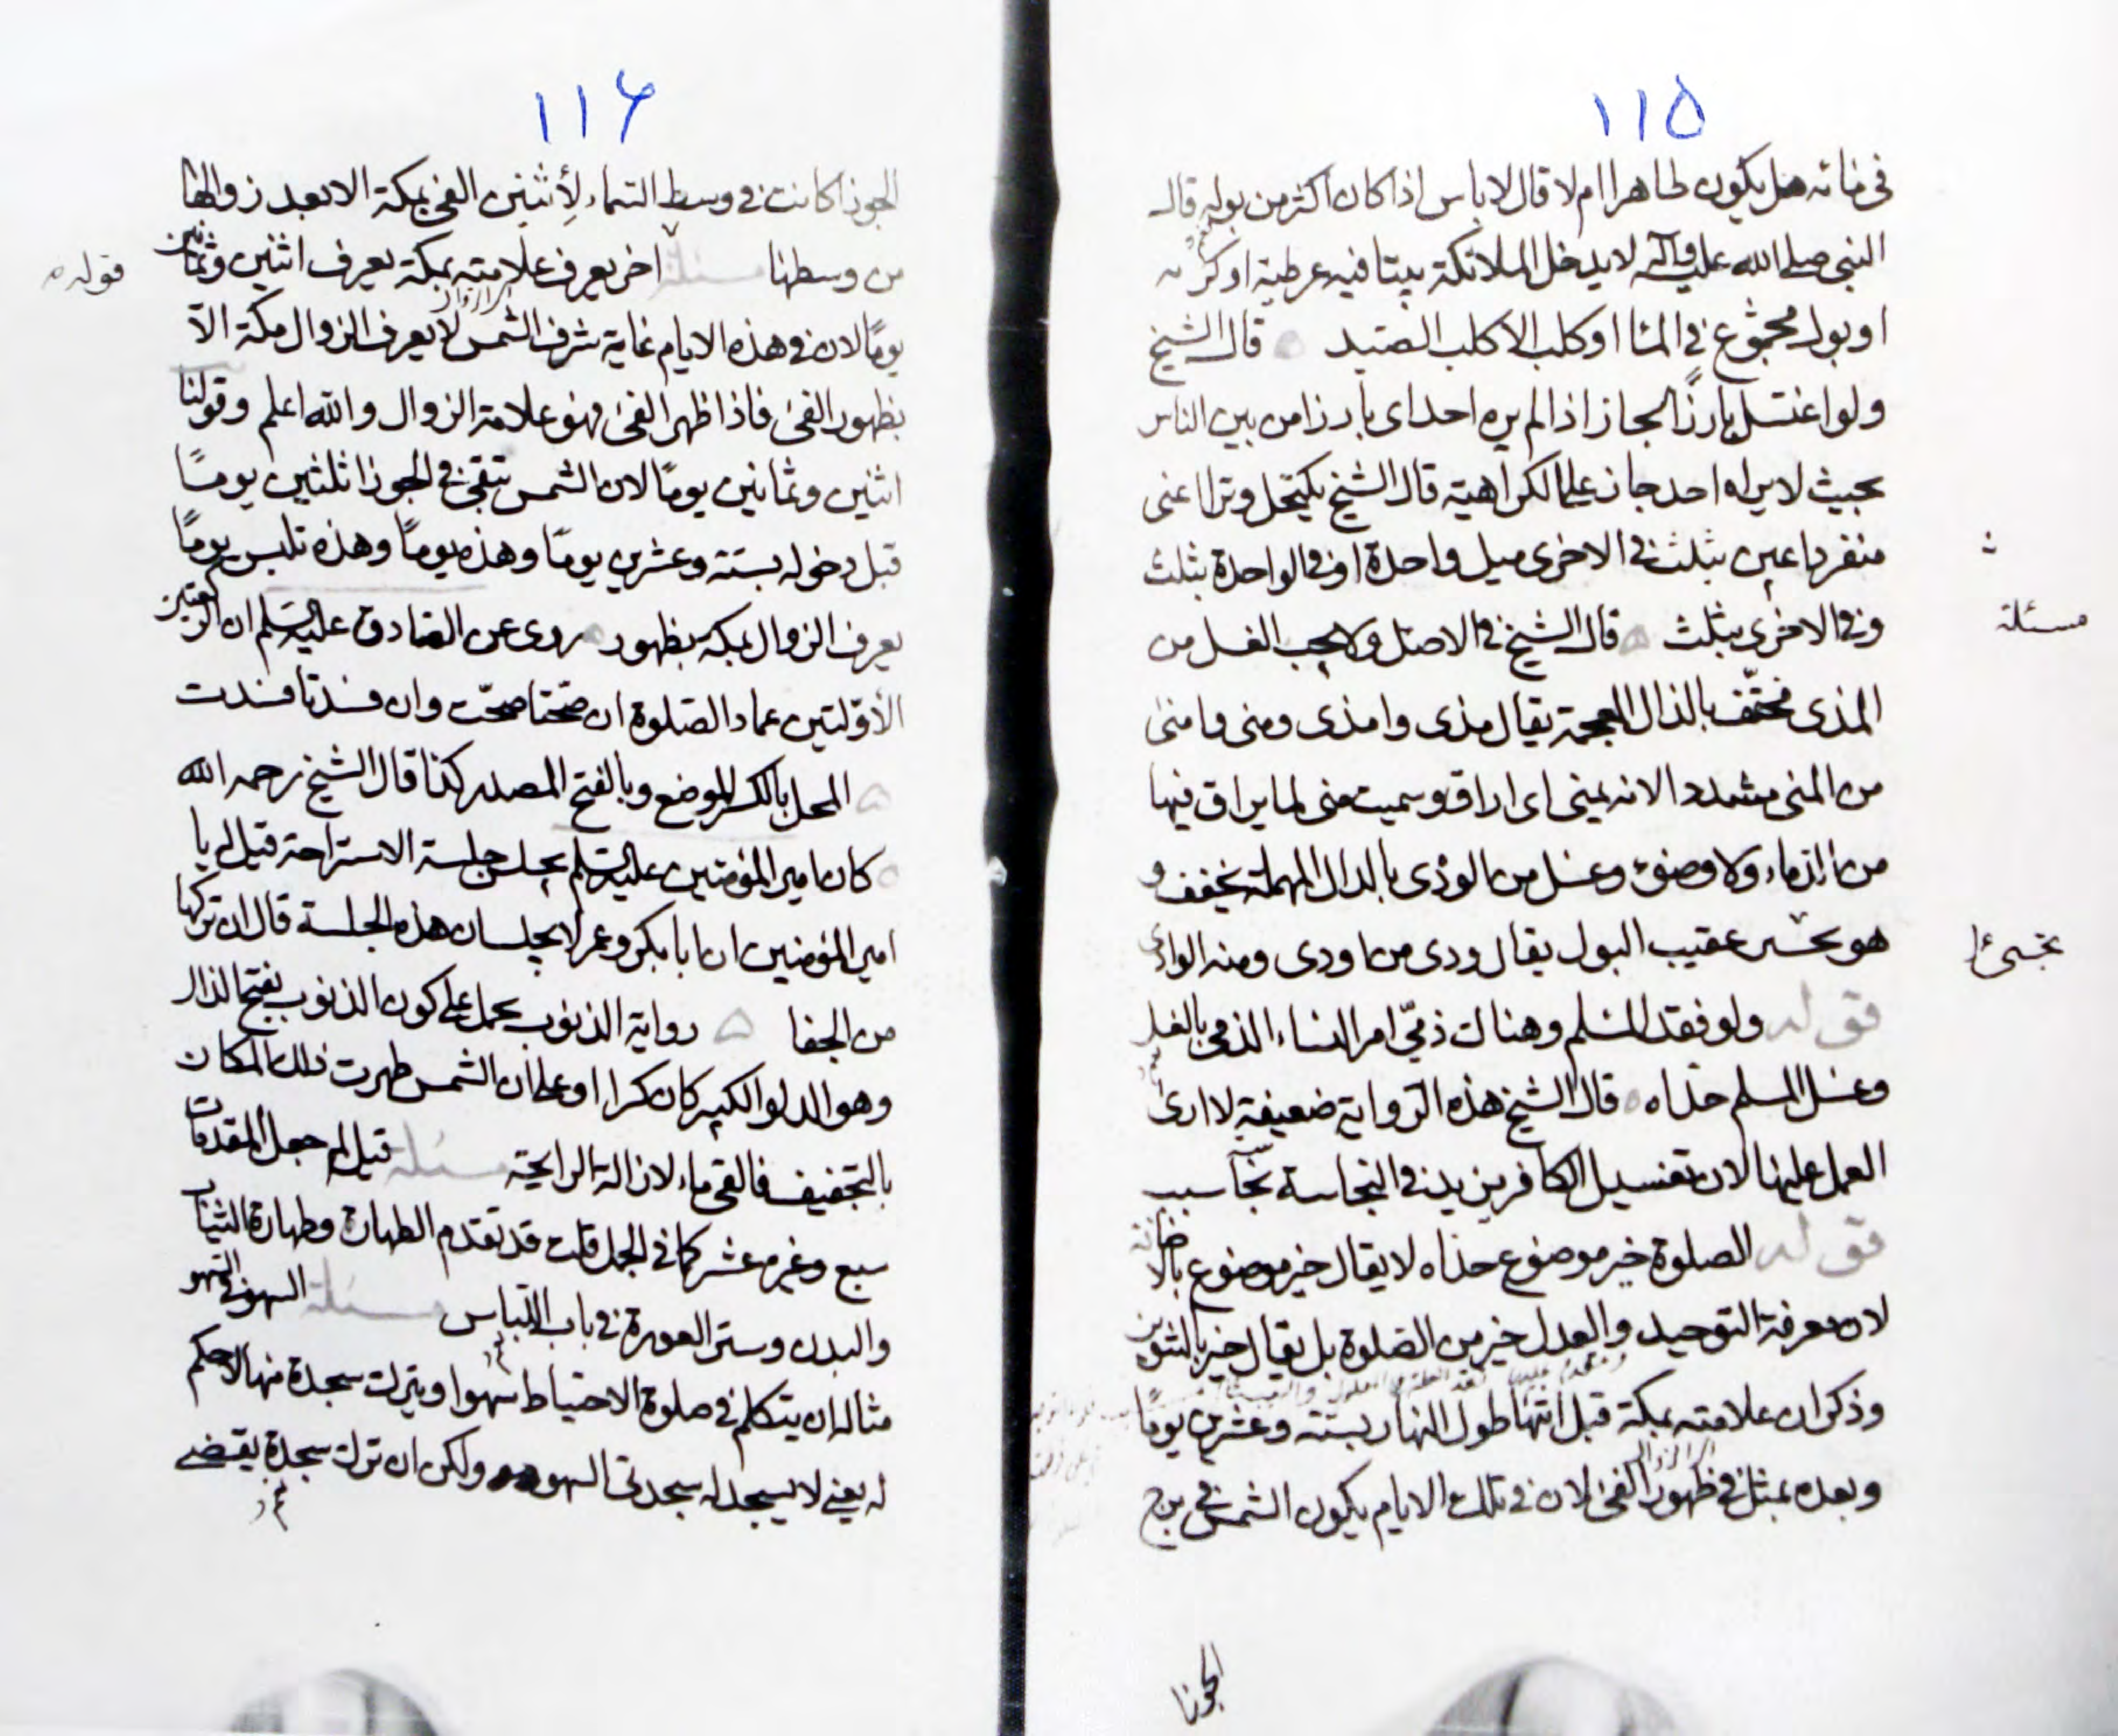 ١١٥
في مائه هل يكون طاهرا ام لا قال لا باس اذا كان اكثر من بوله قال
النبي صلى الله عليه وآله لا يدخل الملائكة بيتا فيه عرطبة او
او بول مجموع في اناء او كلب الا كلب الصيد قال الشيخ
ولو اغتسل بارزًا لجاز اذا لم يره احد اى بارزا من بين الناس
بحيث لا يراه احد جاز على الكراهية قال الشيخ يكتحل وترا اعنى
منفردا عين بثلث في الاخرى ميل واحدة او في الواحدة بثلث
وفي الاخرى بثلث قال الشيخ في الاصل ولا يجب الغسل من
مسئلة
المذى مخفّف بالذال المعجمة يقال مذى وامذى ومنى وامنى
من المنى مشددا لانه يمنى اى اراق وسميت منى لما يراق فيها
من الدماء ولا وضوء وغسل من الودى بالدال المهملة يخفف و
هو يخرج عقيب البول يقال ودى من اودى ومنه الوادى
قوله ولو فقد المسلم وهناك ذمّي امر النساء الذمي بالغسل
وغسل المسلم حذاه قال الشيخ هذه الرواية ضعيفة لا ارى
العمل عليها لان تغسيل الكافر يزيد في النجاسة
قوله الصلوة خير موضوع حذاه لا يقال خير موضوع بالاضافة
لان معرفة التوحيد والعدل خير من الصلوة بل يقال خير بالتنوين
وذكر ان علامته بمكة قبل انتها طول النهار بستة وعشرين يومًا
وبعده بمثل في ظهور الفئ لان في تلك الايام يكون الشمس في برج
الجوزا
١١۶
الجوزا كانت في وسط السماء لا الفئ بمكة الا بعد زوالها
من وسطها مسئلة اخر يعرف علامته بمكة يعرف اثنين وثمانين
قوله
يومًا لان في هذه الايام غاية شرف الشمس لا يعرف الزوال مكة الاّ
بظهور الفئ فاذا ظهر الفئ فهو علامة الزوال والله اعلم وقولنا
اثنين وثمانين يومًا لان الشمس تبقى في الجوزا ثلثين يومًا
قبل دخوله بستة وعشرين يومًا وهذه يومًا وهذه يومًا
يعرف الزوال بمكة بظهور روى عن الصادق عليه السلم ان الركعتين
الأوّلتين عماد الصلوة ان صحّتا صحّت وان فسدتا فسدت
المحل بالكسر الموضع وبالفتح المصدر كذا قال الشيخ رحمه الله
كان امير المؤمنين عليه السلم يجلس جلسة الاستراحة قيل له يا
امير المؤمنين ان ابا بكر وعمر لا يجلسان هذه الجلسة قال ان تركها
من الجفا رواية الذنوب يحمل على كون الذنوب بفتح الذال
وهو الدلو الكبير كان كرا او على ان الشمس طهرت ذلك المكان
بالتجفيف فالقى ماء لازالة الرايحة مسئلة قيل لم جعل المقدمات
سبع وغيره عشر كما في الجمل قلت قد تقدم الطهارة وطهارة الثياب
والبدن وستر العورة في باب اللباس مسئلة السهو في السهو
مثاله ان يتكلم في صلوة الاحتياط سهوا او يترك سجدة منها لا حكم
له يعني لا يسجد له سجدتى السهو ولكن ان ترك سجدة يقضى